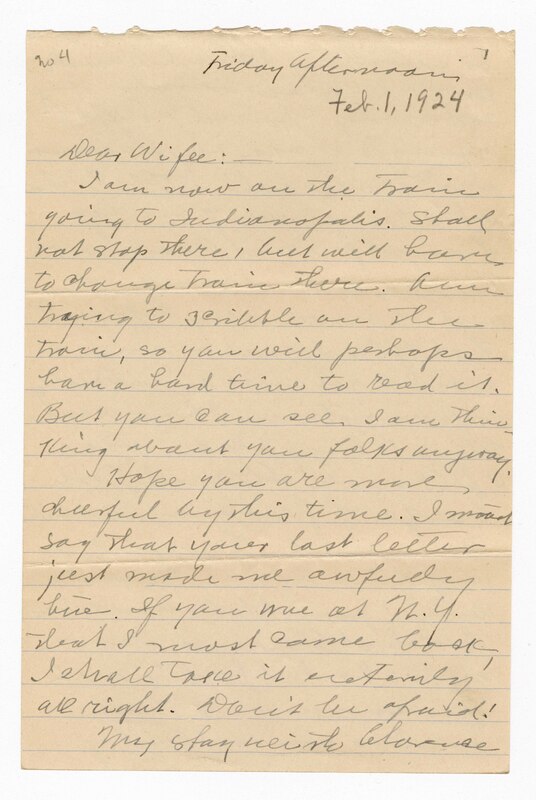 no 4
1
Friday Afternoon
Feb. 1, 1924
Dear Wifee: —
I am now on the Train
going to Indianopolis. Shall
not stop there, but will have
to change train there. Am
trying to scribble on the
train, so you will perhaps
have a hard time to read it.
But you can see I am thin-
king about you folks anyway.
Hope you are more
cheerful by this time. I must
say that your last letter
just made me awfully
blue. If you wire at N.Y.
that I must come back,
I shall take it
all right. Don't be afraid!
My stay with Clarence